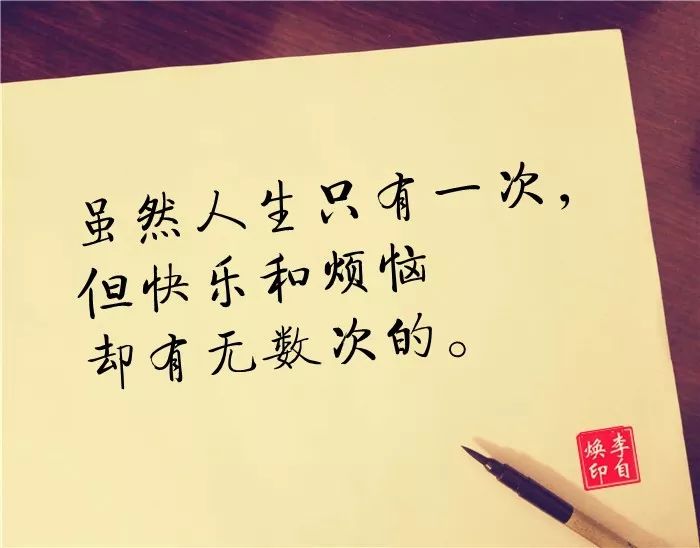 虽然人生只有一次，
但快乐和烦恼
却有无数次的。
李自
焕印